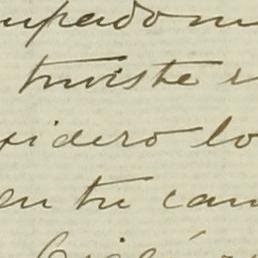 upado m
tuviste
sidero lo
en tu cam